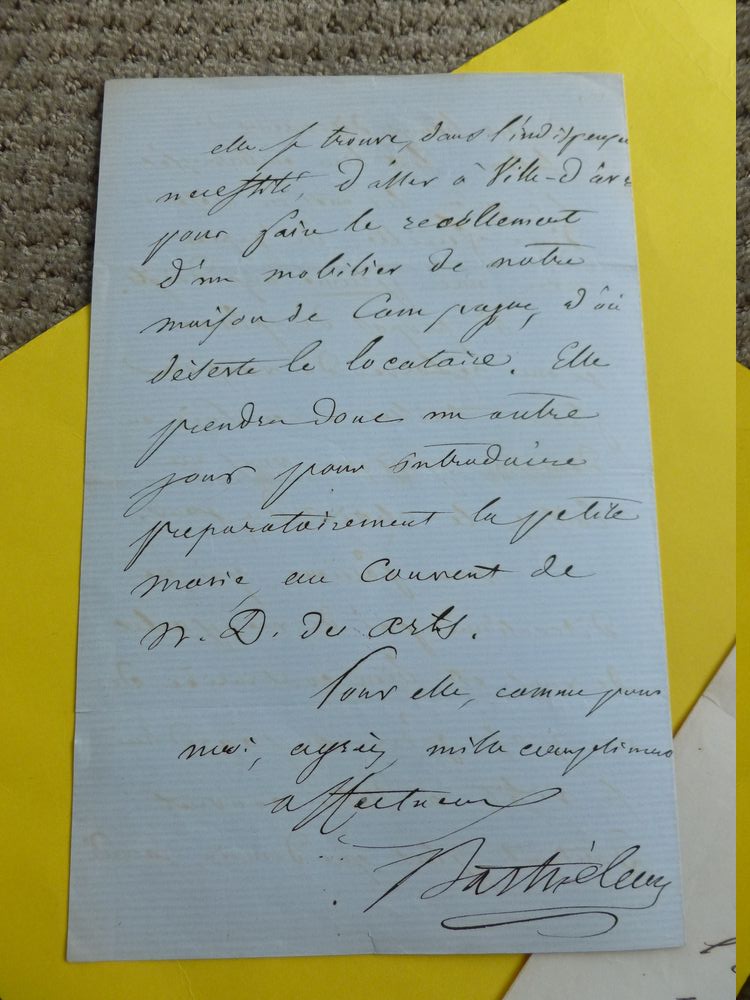 elle se trouve, dans l'indispens
necessité, d'aller à Ville-d'avr
pour faire le recollement
d'un mobilier de notre
maison de Campagne, d'où
déserte le locataire. Elle
prendra donc un autre
jour pour introduire
preparatoirement la petite
marie, au Couvent de
N. D. des arts.
Pour elle, comme pour
moi, agréez, mille complimens
affectueux
Barthélemy